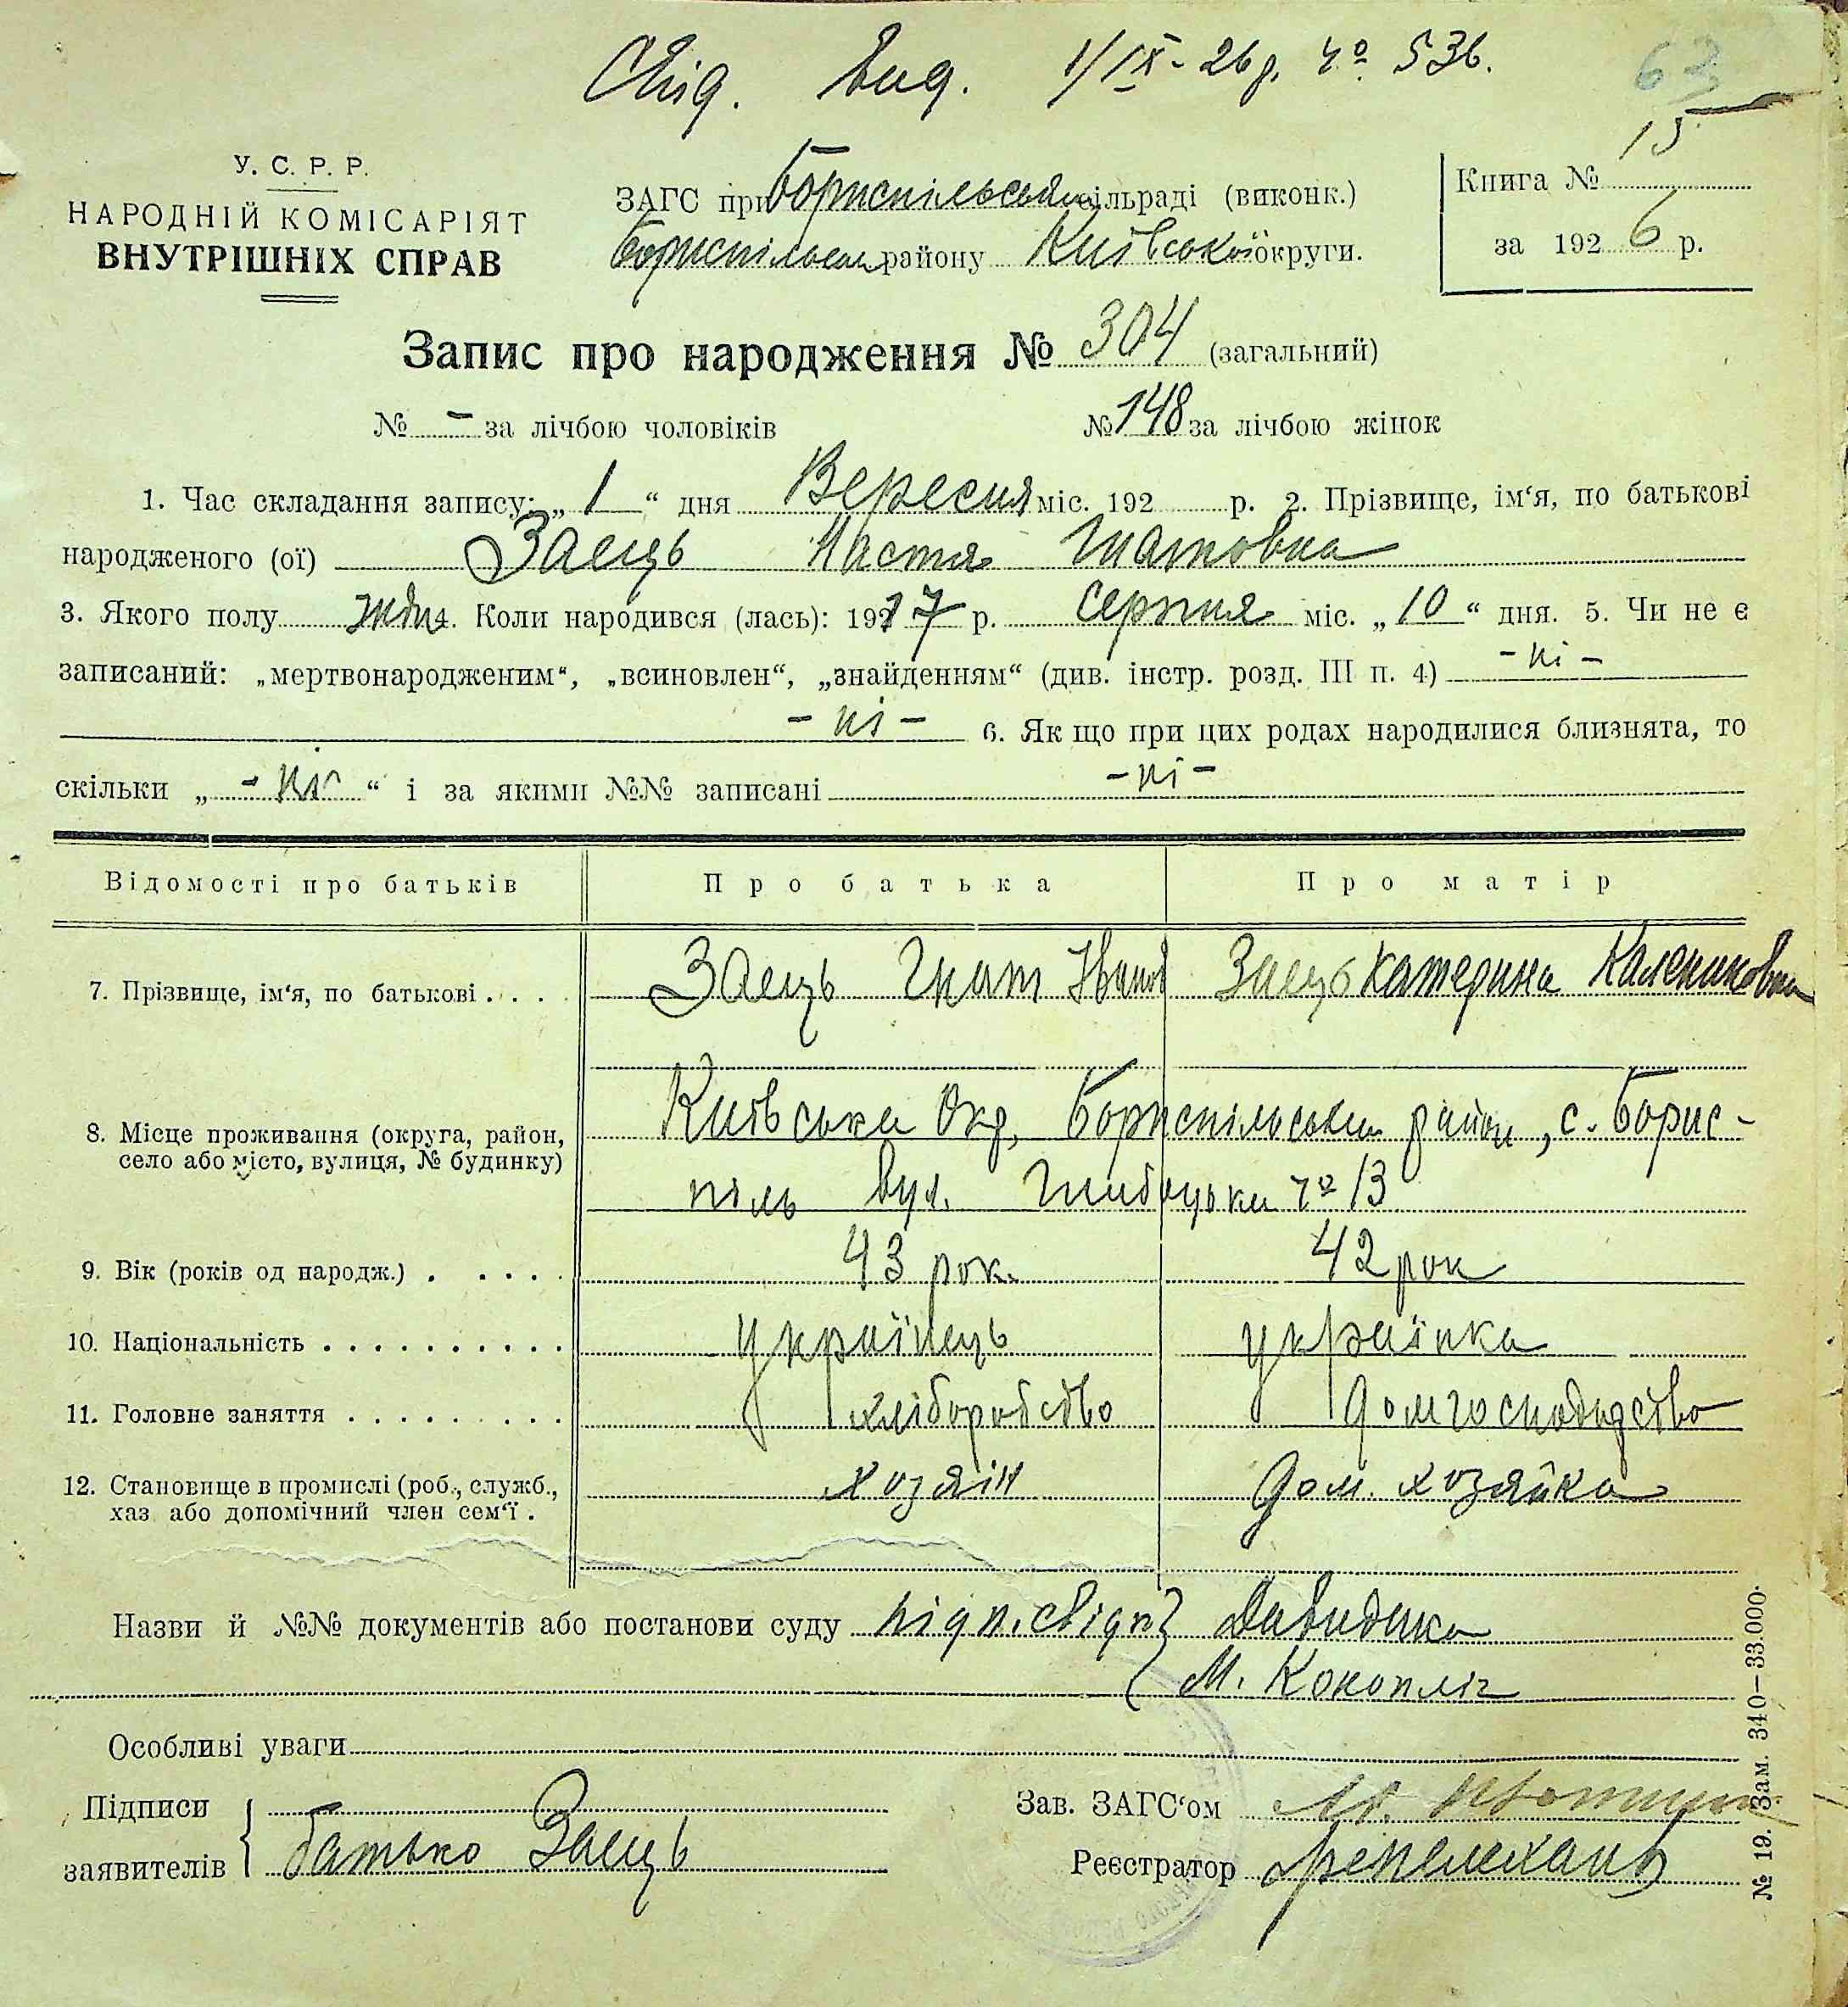 Свід. вид. 1/IX-26 р. № 536.
63
15
У. С. Р. Р.
НАРОДНІЙ КОМІСАРІЯТ
ВНУТРІШНІХ СПРАВ
ЗАГС при Бориспільськ сільраді (виконк.)
Бориспільськ району Київської округи.
Книга №
за 1926 р.
Запис про народження № 304 (загальний)
№ - за лічбою чоловіків № 148 за лічбою жінок
1. Час складання запису: „ 1 “ дня Вересня міс. 192 р. 2. Прізвище, ім‘я, по батькові
народженого (ої) Заєць Настя Гнатовна
3. Якого полу жін 4. Коли народився (лась): 1917 р. Серпня міс. „ 10 “ дня. 5. Чи не є
записаний: „мертвонародженим“, „всиновлен“, „знайденням“ (див. інстр. розд. III п. 4) - ні -
- ні - 6. Як що при цих родах народилися близнята, то
скільки „ - ні - “ і за якими №№ записані - ні -
Відомості про батьків Про батька Про матір
7. Прізвище, ім‘я, по батькові . . . . Заєць Гнат Іванов Заєць Катерина Калениковна
8. Місце проживання (округа, район,
село або місто, вулиця, № будинку)
Київська Окр. Бориспільськи район, с. Борис-
піль вул. № 13
9. Вік (років од народж.) . . . . . 43 рок. 42 рок
10. Національність . . . . . . . . . . українець українка
11. Головне заняття . . . . . . . . . хліборобство домгосподарство
12. Становище в промислі (роб., служб.,
хаз або допомічний член сем‘ї .
хозяін Дом. хозяйка
Назви й №№ документів або постанови суду підп. свідк} Давиденко
М. Конопліч
Особливі уваги
Підписи
заявителів
батько Заєць
Зав. ЗАГС‘ом
Реєстратор
№ 19. Зам. 340—33.000.